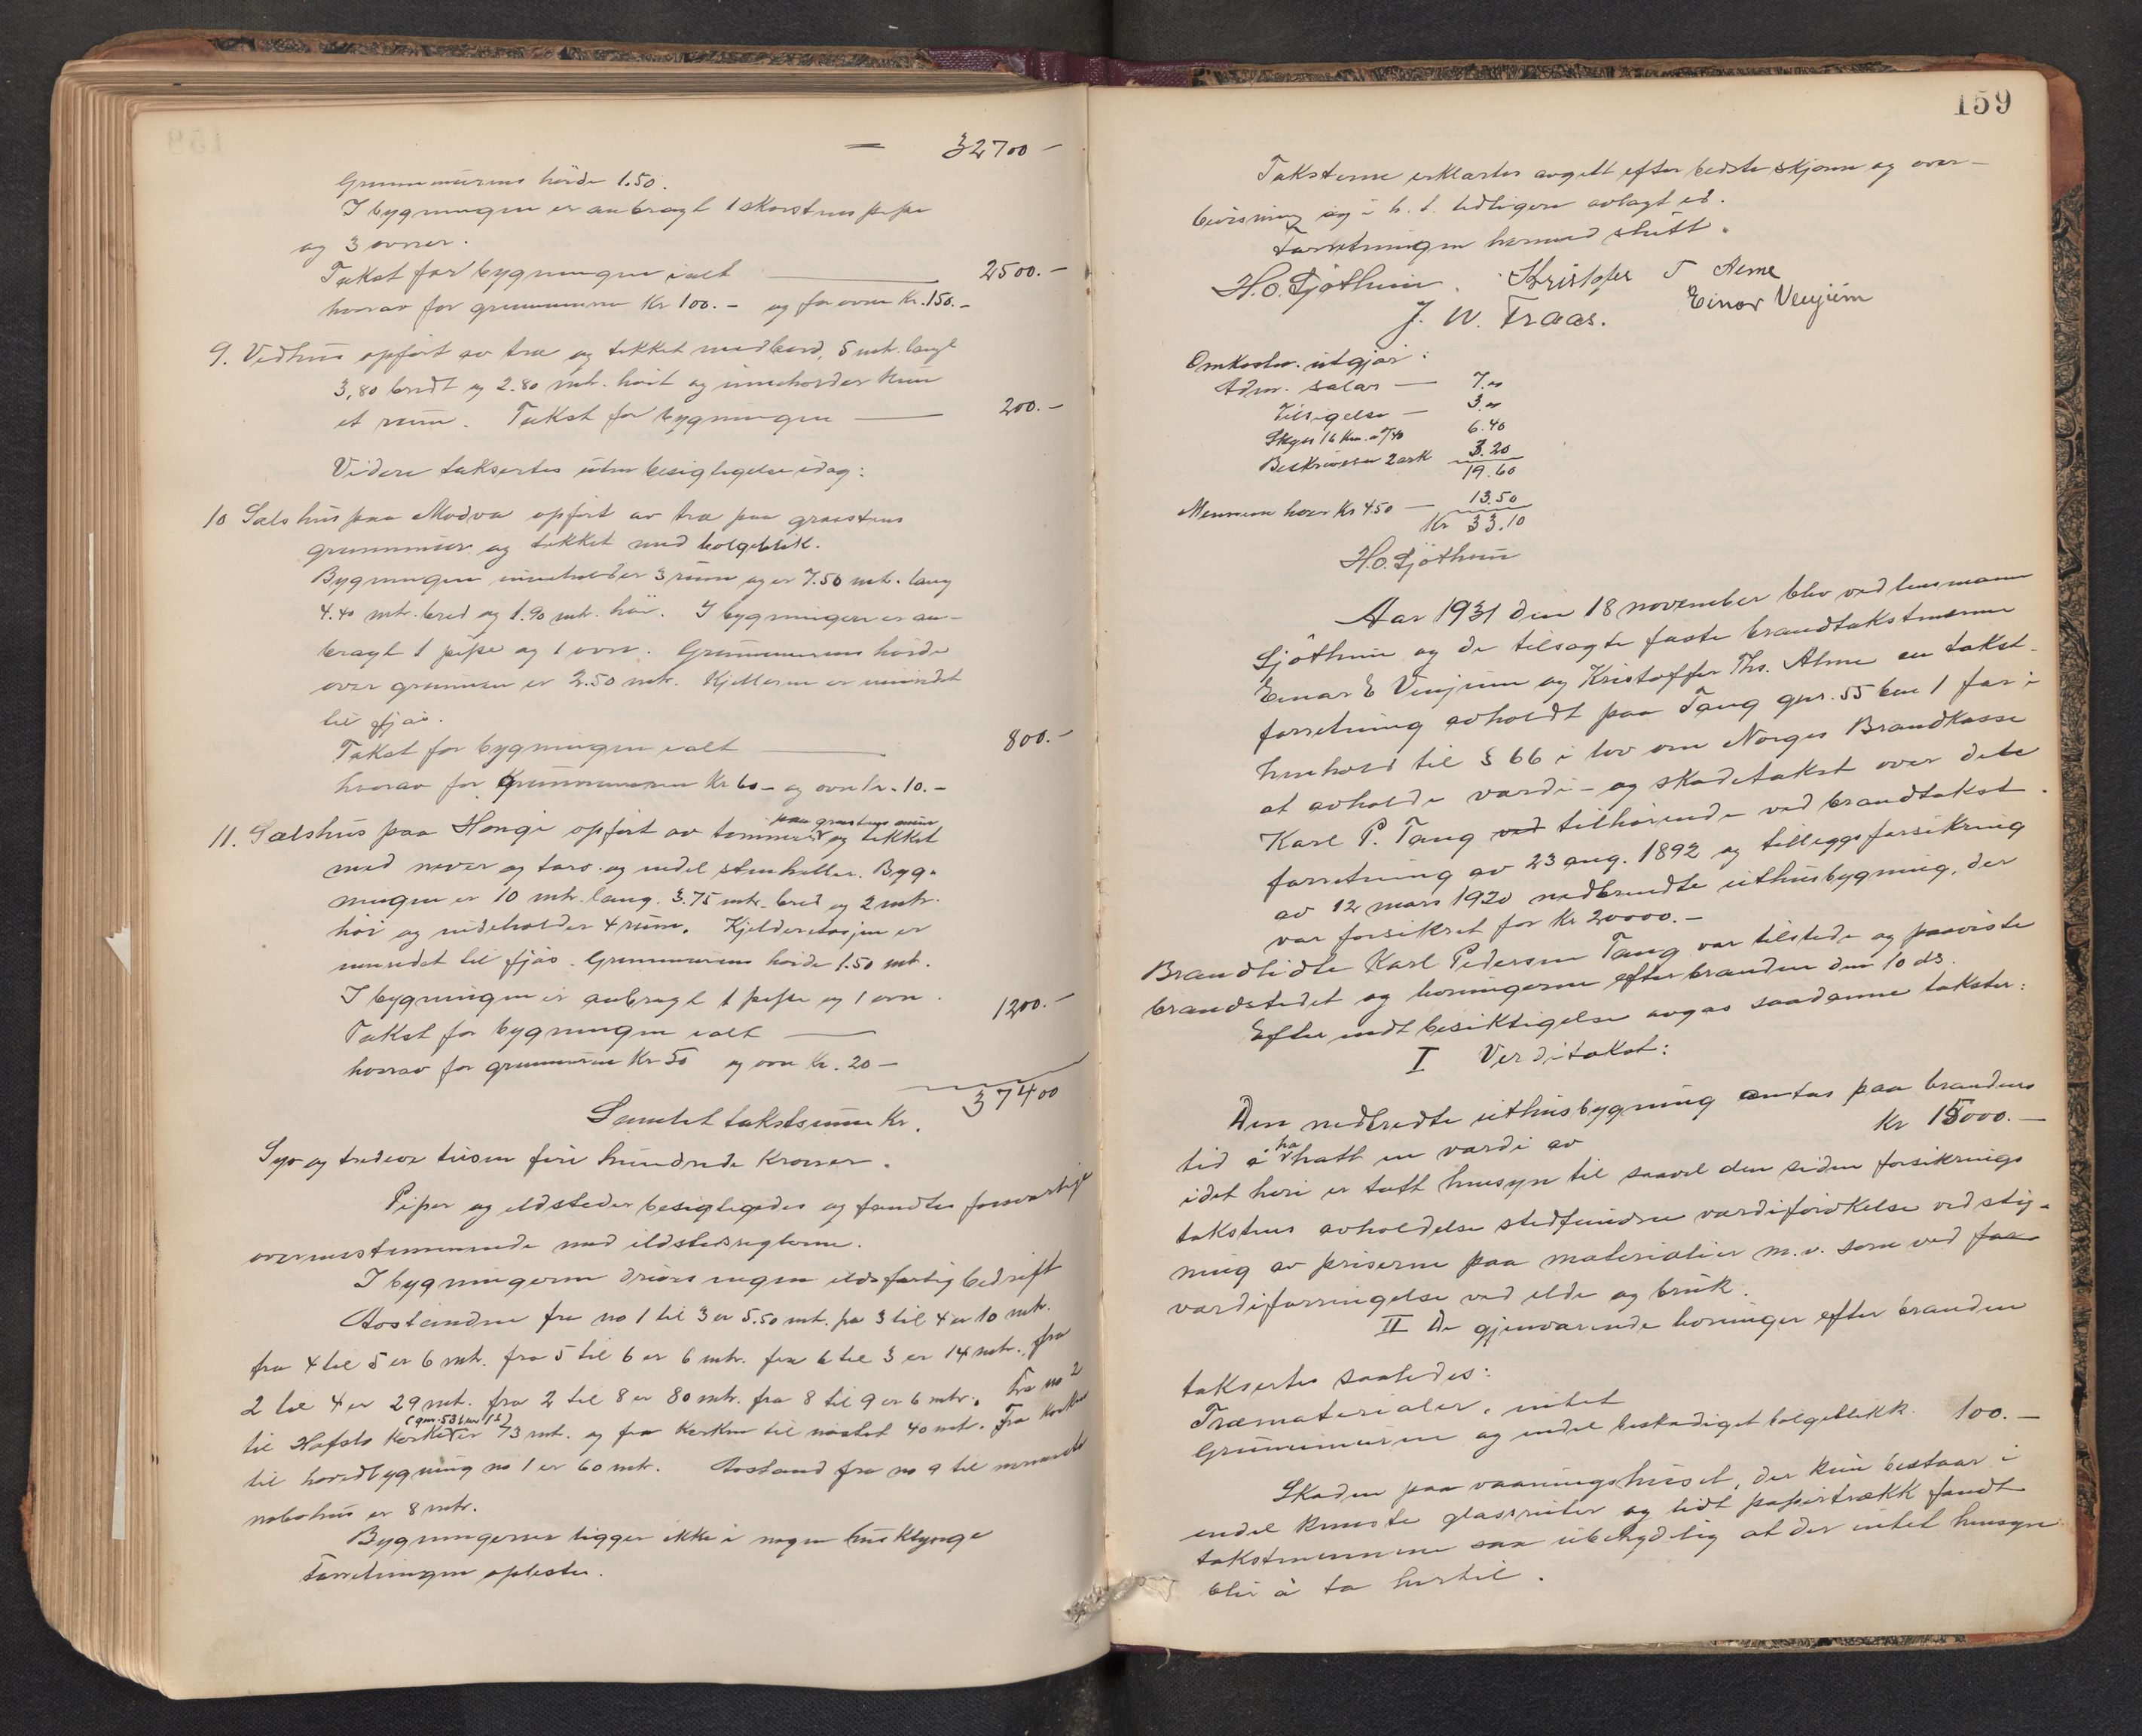 — 32700 -
Grunnmurens höide 1.50.
I bygningen er anbragt 1 skorstenspipe
og 3 ovner.
Takst for bygningen ialt — 2500.-
hvorav for grunnmuren Kr 100.- og for ovne Kr. 150.-
9. Vedhus opført av træ og tekket med bord, 5 mtr. langt
3,80 bredt og 2.80 mtr. høit og inneholder kun
et rum. Takst for bygningen — 200.-
Videre takseres uten besigtigelse idag:
10 Sælshus paa Modva opført av træ paa graastens
grunnmur og tekket med bølgeblik.
Bygningen inneholder 3 rum og er 7.50 mtr. lang
4.40 mtr. bred og 1.90 mtr. høi. I bygningen er an-
bragt 1 pipe og 1 ovn. Grunnmurens høide
over grunnen er 2.50 mtr. Kjelleren er innredet
til fjøs.
Takst for bygningen ialt — 800.-
hvorav for Grunnmuren Kr 60- og ovn kr. 10.-
11. Sælshus paa Hongi opført av tømmer paa graastens mur og tekket
med never og torv og endel stenheller. Byg-
ningen er 10 mtr. lang. 3.75 mtr. bred og 2 mtr.
høi og indeholder 4 rum. Kjelderetasjen er
innredet til fjøs. Grunnmurens høide 1.50 mtr.
I bygningen er anbragt 1 pipe og 1 ovn.
Takst for bygningen ialt — 1200.-
hvorav for grunnmuren Kr 50 og ovn Kr. 20 -
Samlet takstsum Kr. 37400
Syv og tredeve tusen fire hundrede Kroner.
Piper og ildsteder besigtigedes og fandtes forsvarlige
overensstemmende med ildstedsreglerne.
I bygningerne drives ingen ildsfarlig bedrift
Avstanden fra no 1 til 3 er 5.50 mtr. fra 3 til 4 er 10 mtr.
fra 4 til 5 er 6 mtr. fra 5 til 6 er 6 mtr. fra 6 til 3 er 14 mtr. fra
2 til 4 er 29 mtr. fra 2 til 8 er 80 mtr. fra 8 til 9 er 6 mtr. Fra no 2
til Hafslo Kirke (gnr. 53 bnr 12) er 73 mtr. og fra Kirken til naustet 40 mtr. Fra Kirken
til hovedbygning no 1 er 60 mtr. Avstand fra no 9 til nærmeste
nabohus er 8 mtr.
Bygningerne ligger ikke i nogen husklynge
Forretningen oplestes.
159
Taksterne erklærtes avgitt efter bedste skjønn og over-
bevisning og i h. t. tidligere avlagt ed.
Forretningen hermed slutt.
H.O. Sjøthun. Kristoffer T Alme
J. W. Traas. Einar Venjum
Omkostn. utgjør:
Adm. salær — 7.00
Tilsigelse — 3.00
Skyss 16 Km. a /40 6.40
Beskrivelse 2 ark 3.20
19.60
Mennene hver Kr 4.50 — 13.50
Kr 33.10
H.O. Sjøthun
Aar 1931 den 18 november blev ved lensmann
Sjøthun og de tilsagte faste brandtakstmenn
Einar E Venjum og Kristoffer Ths. Alme en takst-
forretning avholdt paa Tang gnr. 55 bnr 1 for i
henhold til § 66 i lov om Norges Brandkasse
at avholde værdi- og skadetakst over dete
Karl P. Tang ved tilhørende ved brandtakst-
forretning av 23 aug. 1892 og tilleggsforsikring
av 12 mars 1920 nedbrendte uthusbygning, der
var forsikret for Kr 20000.-
Brandlidte Karl Pedersen Tang var tilstede og paaviste
brandstedet og levningerne efter branden den 10 ds.
Efter endt besiktigelse avgas saadanne takster:
I Verditakst:
Den nedbrendte uthusbygning antas paa brandens
tid å ha hatt en værdi av Kr 15000.-
idet heri er tatt hensyn til saavel den siden forsikrings
takstens avholdelse stedfundne værdiforøkelse ved stig-
ning av priserne paa materialier m.v. som ved for
værdiforringelse ved elde og bruk.
II De gjenværende levninger efter branden
taksertes saaledes:
Træmaterialer, intet
Grunnmurene og endel beskadiget bølgeblikk 100.-
Skaden paa vaaningshuset, der kun bestaar i
endel knuste glassruter og lidt papirtrækk fandt
takstmennene saa ubetydelig at der intet hensyn
blir å ta hertil.